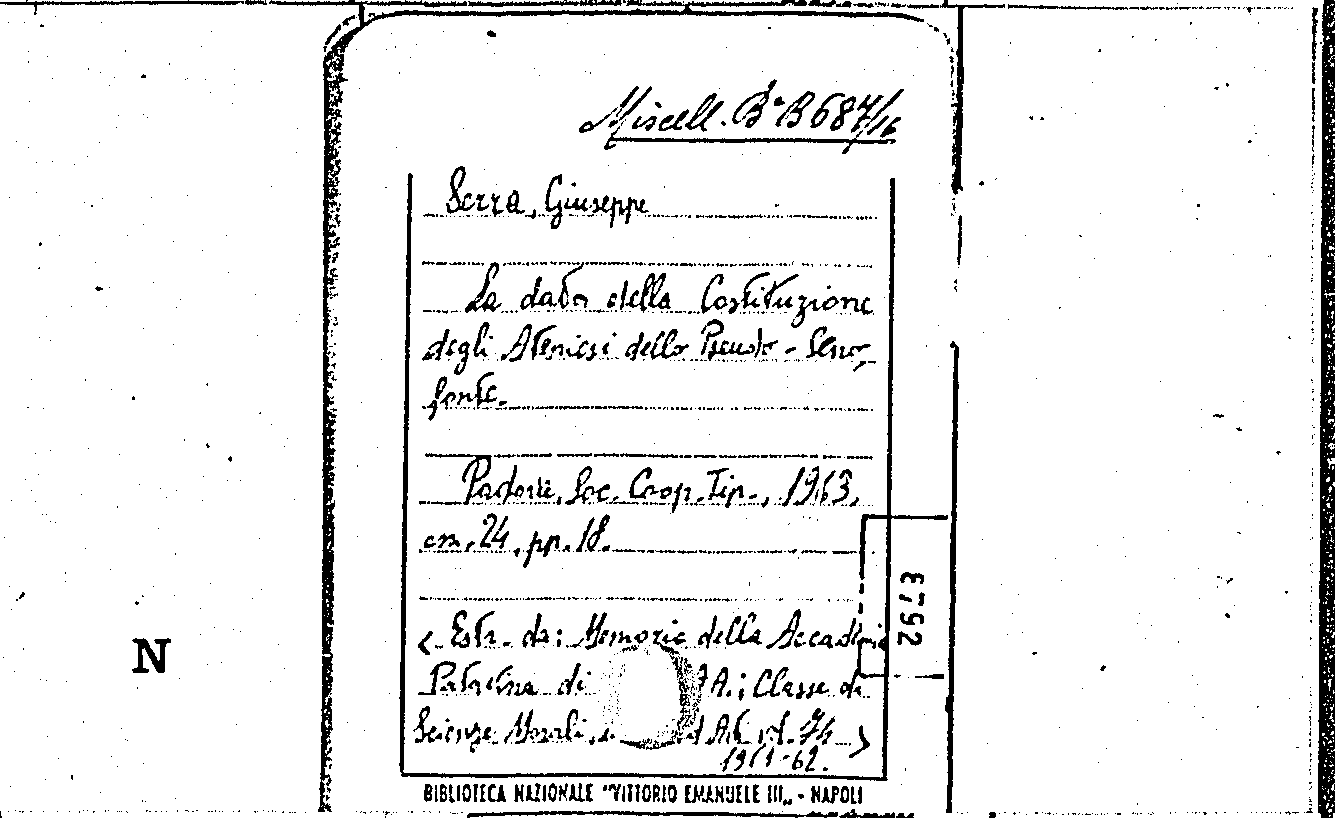 Miscell. Bª B 687/16
Serra, Giuseppe
La data della Costituzione
degli Ateniesi dello Pseudo-Seno,
fonte.
Padova, Soc. Coop. Tip., 1963,
cm. 24, pp. 18.
< Estr. da: Memorie della Accademia
Patavina di A.; Classe di
Scienze Morali, ed Arti vol. 74
1961-62. >
E792
N
BIBLIOTECA NAZIONALE "VITTORIO EMANUELE III„ - NAPOLI